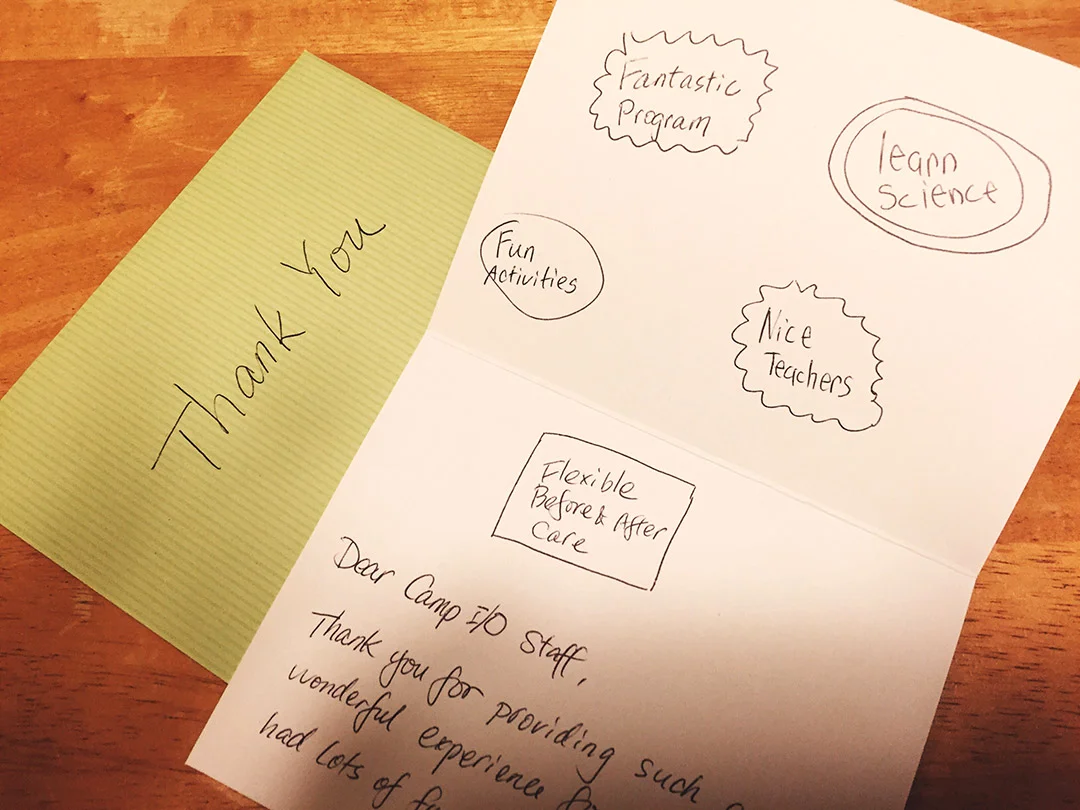 Thank You
Fantastic
Program
learn
science
Fun
Activities
Nice
Teachers
Flexible
Before & After
Care
Dear Camp I/O Staff,
Thank you for providing such
wonderful experience
had lots of